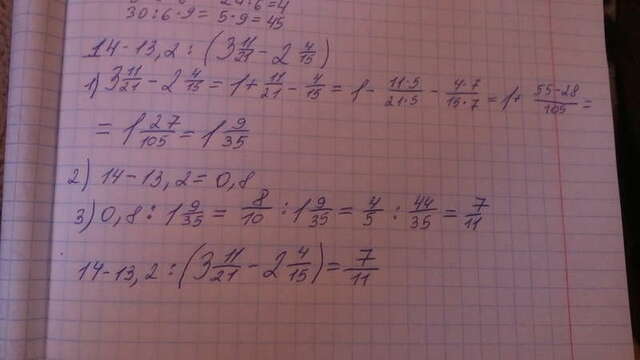 24:6=4
30:6·9= 5·9=45
14-13,2:(3 11/21 - 2 4/15)
1) 3 11/21 - 2 4/15 = 1+ 11/21 - 4/15 = 1- 11·5/21·5 - 4·7/15·7 = 1+ 55-28/105 =
= 1 27/105 = 1 9/35
2) 14-13,2=0,8
3) 0,8:1 9/35 = 8/10 :1 9/35 = 4/5 : 44/35 = 7/11
14-13,2:(3 11/21 - 2 4/15)= 7/11